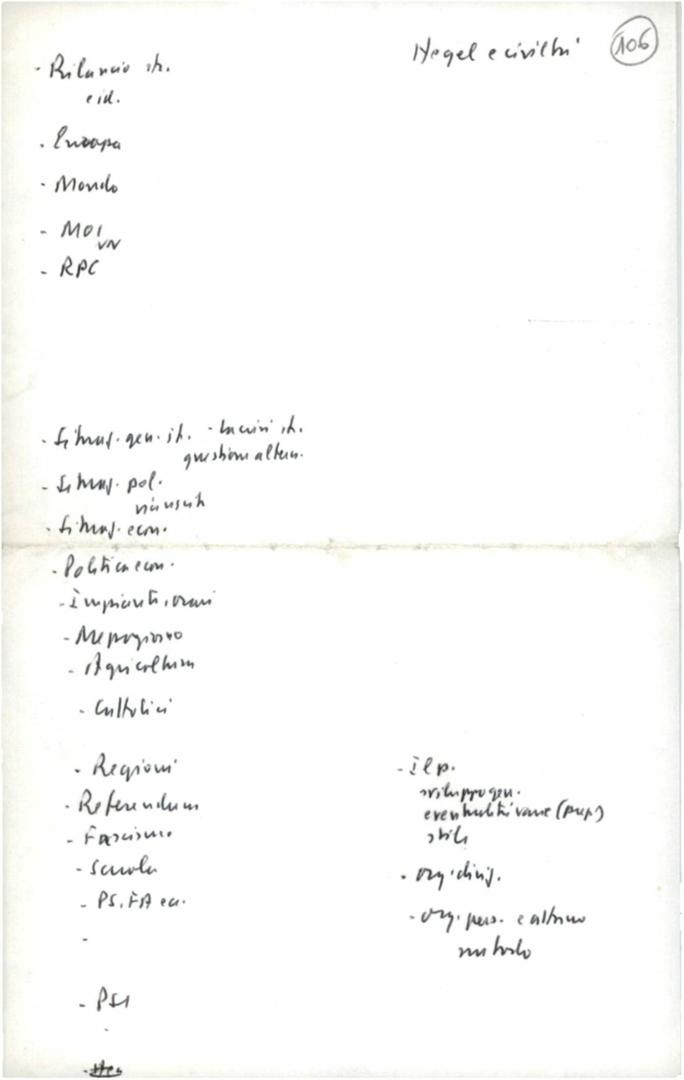 Hegel e civiltà
106
- Rilancio st.
e id.
- Europa
- Mondo
- MOI
VN
- RPC
- Situaz. gen. it. -
questione altern.
- Situaz. pol.
- Situaz. econ.
- Politica econ.
- Impianti, orari
- Mezzogiorno
- Agricoltura
- Cattolici
- Regioni
- Referendum
- Fascismo
- Scuola
- PS, FA ecc.
-
- PSI
- Il p.
sviluppo gen.
eventualità varie (prep)
stile
- org. dirig.
- org. pers. e
metodo